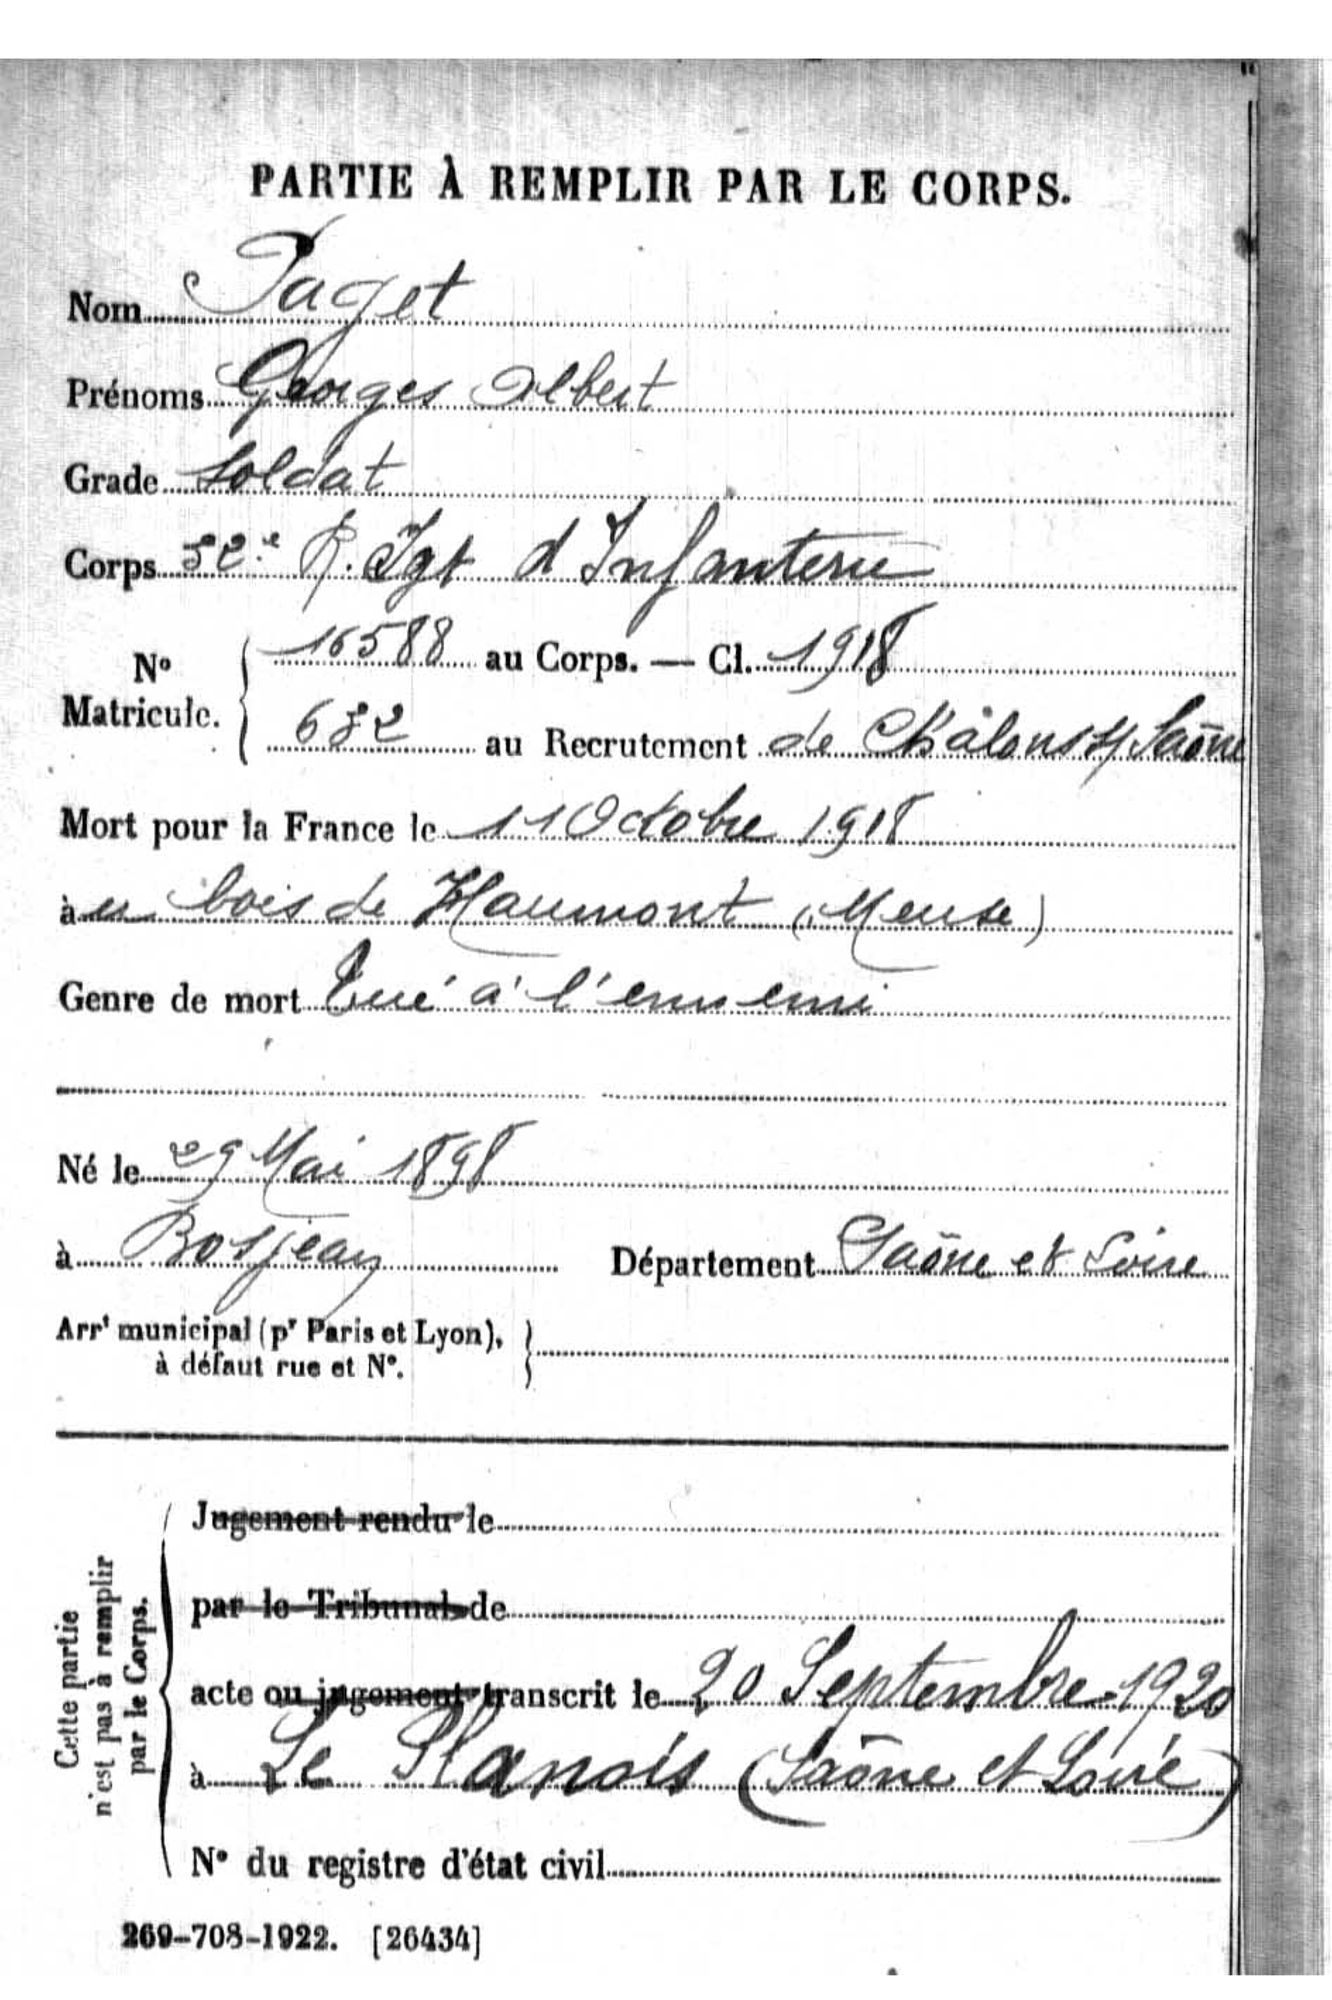 PARTIE À REMPLIR PAR LE CORPS.
Nom Paget
Prénoms Georges Albert
Grade Soldat
Corps 52e d'Infanterie
No Matricule. 16588 au Corps. — Cl. 1918
632 au Recrutement de Châlons s/ Saône
Mort pour la France le 11 Octobre 1918
à u bois de Haumont (Meuse)
Genre de mort Tué à l'ennemi
Né le 29 Mai 1898
à Bosjean Département Saône et Loire
Arrt municipal (pr Paris et Lyon),
à défaut rue et No.
Cette partie
n'est pas à remplir
par le Corps.
Jugement rendu le
par le Tribunal de
acte ou jugement transcrit le 20 Septembre 1920
à Le Planois (Saône et Loire)
No du registre d'état civil
269-708-1922. [26434]